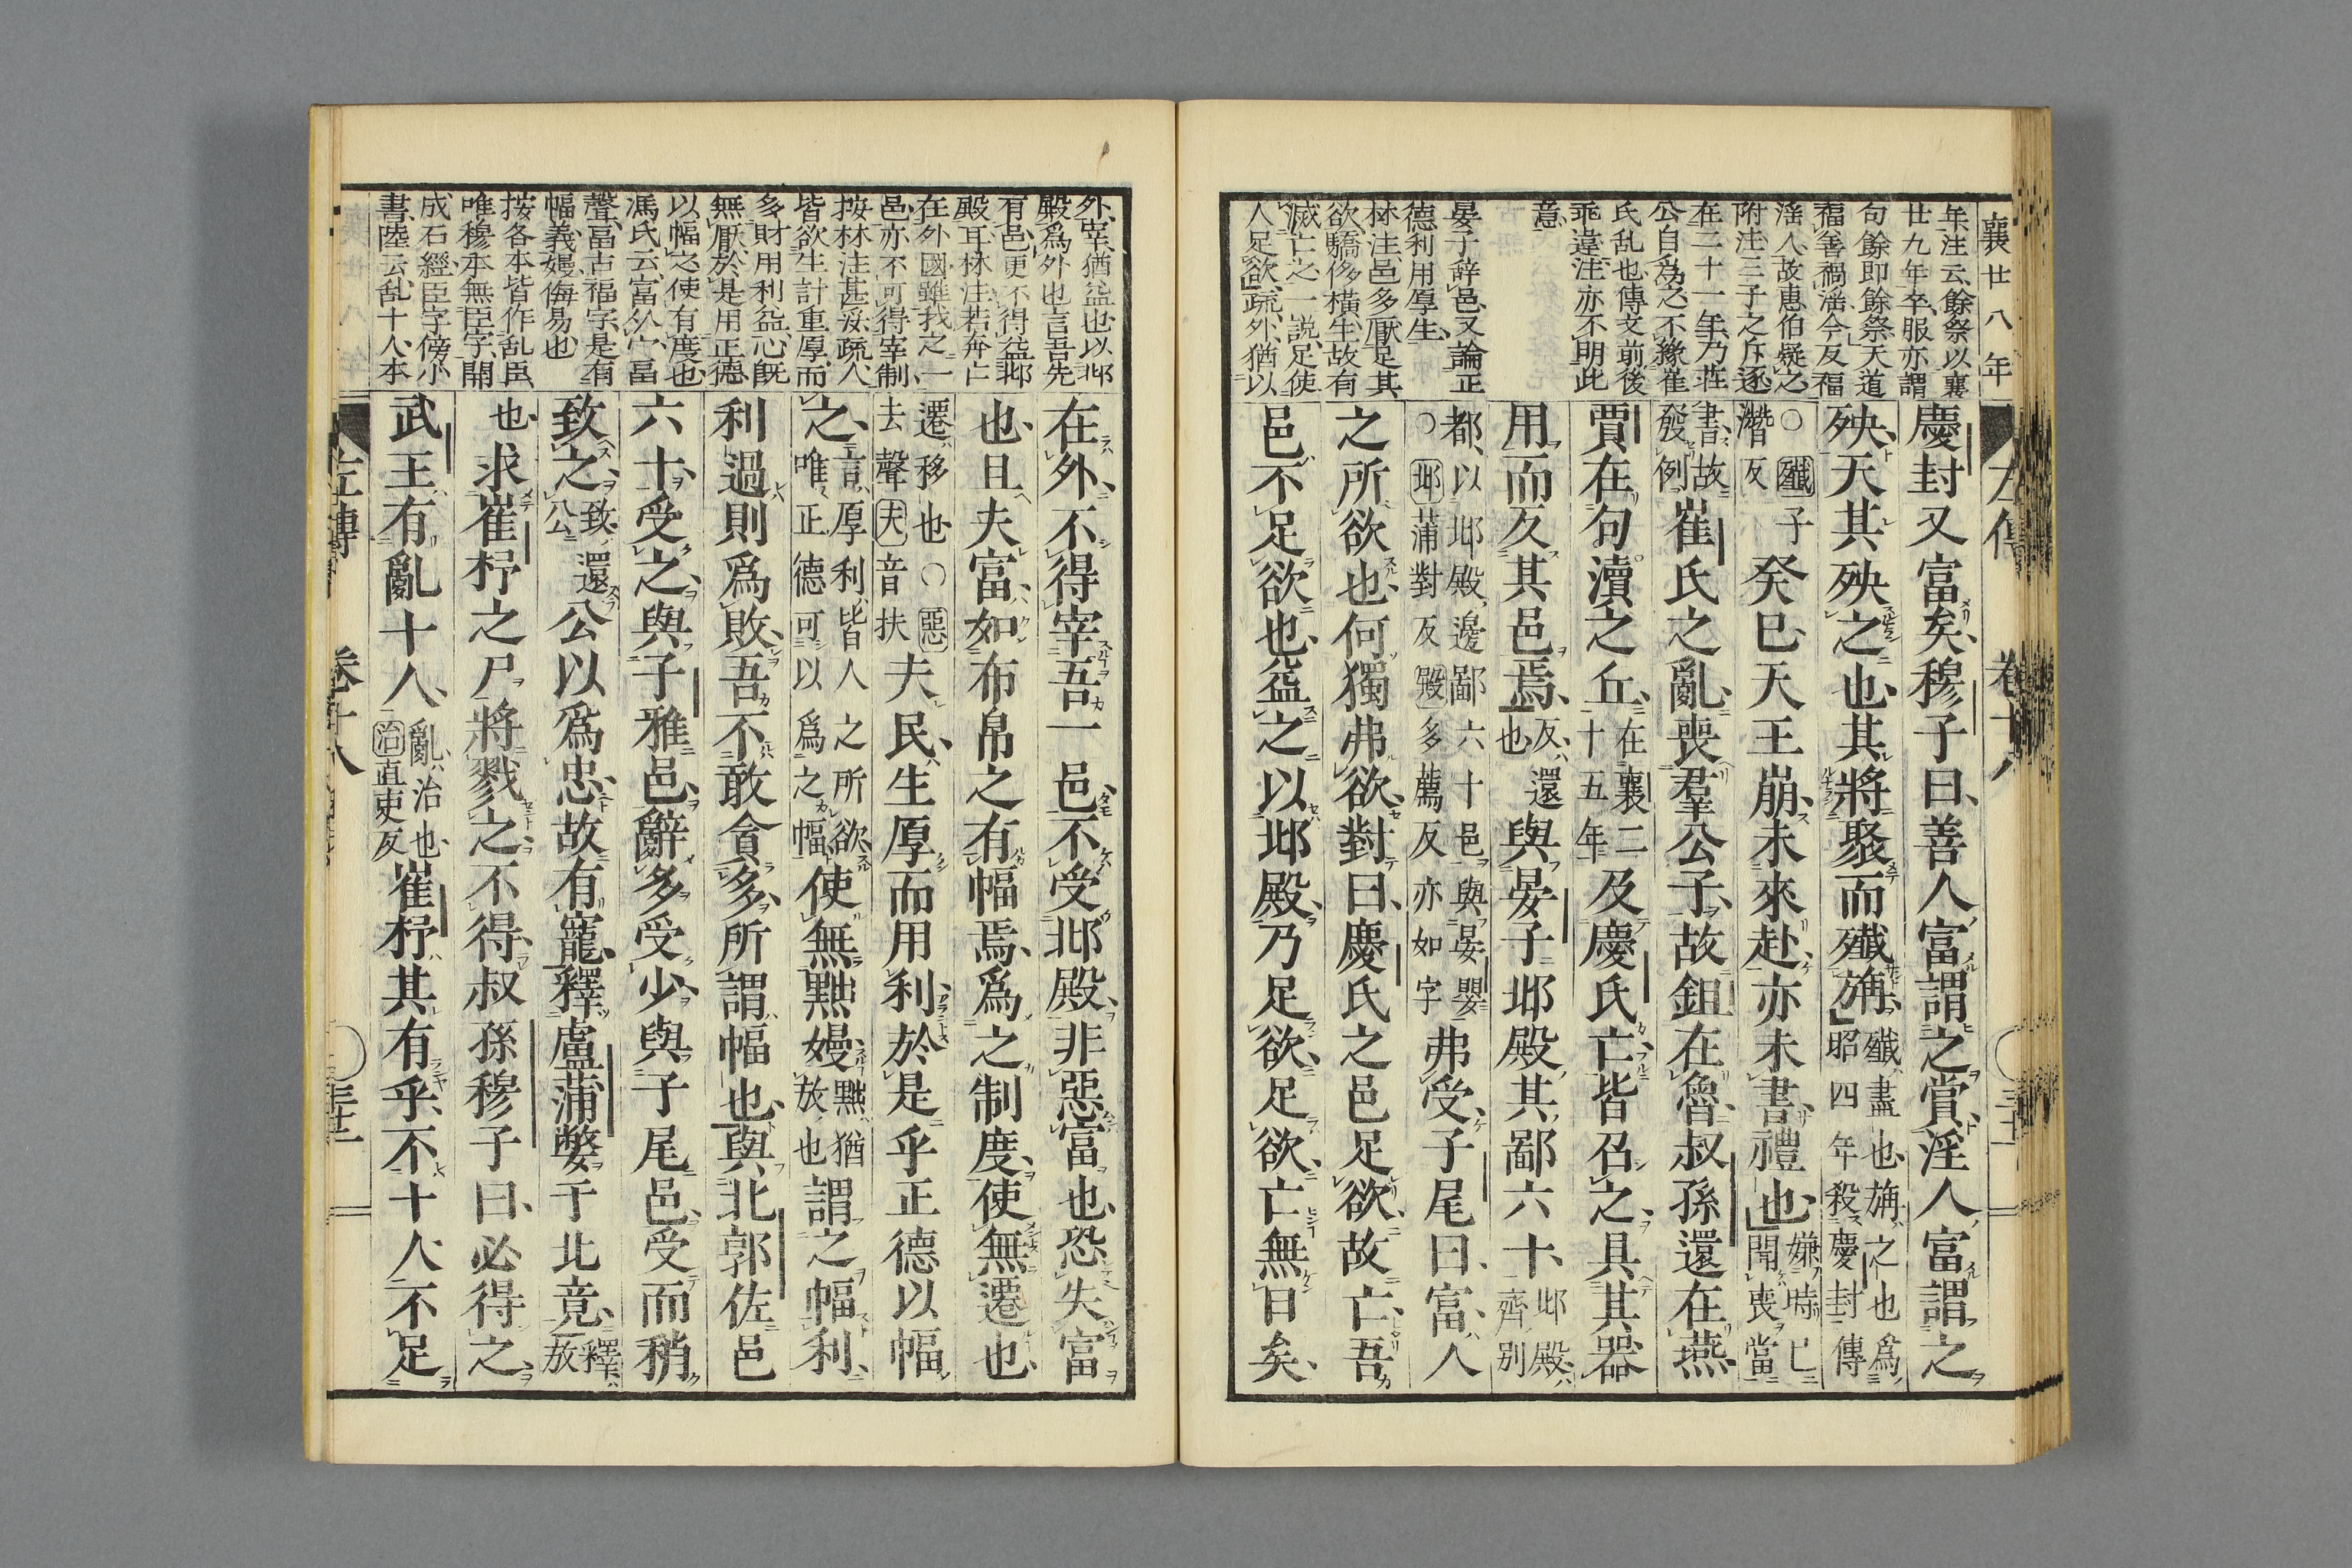 襄廿八年
年注云餘祭以襄
廿九年卒服亦謂
句餘即餘祭天道
福善禍淫今反福
淫人故惠伯疑之
附注三子之斥逐
在二十一年乃莊
公自爲之不緣崔
氏乱也傳文前後
乖違注亦不明此
意
晏子辭邑又論正
德利用厚生
林注邑多厭足其
欲驕侈橫生故有
滅亡之一説足使
人足欲疏外猶以
慶封又富矣穆子曰善人富謂之賞淫人富謂之
殃天其殃之也其將聚而殲旃殲盡也旃之也爲昭四年殺慶封傳
○殲子潛反癸巳天王崩未來赴亦未書禮也嫌時已聞喪當
書故發例崔氏之亂喪羣公子故鉏在魯叔孫還在燕
賈在句瀆之丘在襄二十五年及慶氏亡皆召之具其器
用而反其邑焉反還也與晏子邶殿其鄙六十邶殿齊別
都以邶殿邊鄙六十邑與晏嬰○邶蒲對反殿多薦反亦如字弗受子尾曰富人
之所欲也何獨弗欲對曰慶氏之邑足欲故亡吾
邑不足欲也益之以邶殿乃足欲足欲亡無日矣
外宰猶益也以邶
殿爲外也言吾先
有邑更不得益邶
殿耳林注若奔亡
在外國雖我之一
邑亦不可得宰制
按林注甚妥疏人
皆欲生計重厚而
多財用利益心旣
無厭於是用正德
以幅之使有度也
馮氏云富从宀畐
聲畐古福字是有
幅義嫚侮易也
按各本皆作乱臣
唯穆本無臣字開
成石經臣字傍小
書陸云乱十人本
在外不得宰吾一邑不受邶殿非惡富也恐失富
也且夫富如布帛之有幅焉爲之制度使無遷也
遷移也○惡去聲夫音扶夫民生厚而用利於是乎正德以幅
之言厚利皆人之所欲唯正德可以爲之幅使無黜嫚黜猶放也謂之幅利
利過則爲敗吾不敢貪多所謂幅也與北郭佐邑
六十受之與子雅邑辭多受少與子尾邑受而稍
致之致還公公以爲忠故有寵釋盧蒲嫳于北竟釋放
也求崔杼之尸將戮之不得叔孫穆子曰必得之
武王有亂十人亂治也治直吏反崔杼其有乎不十人不足
左傳
卷十八